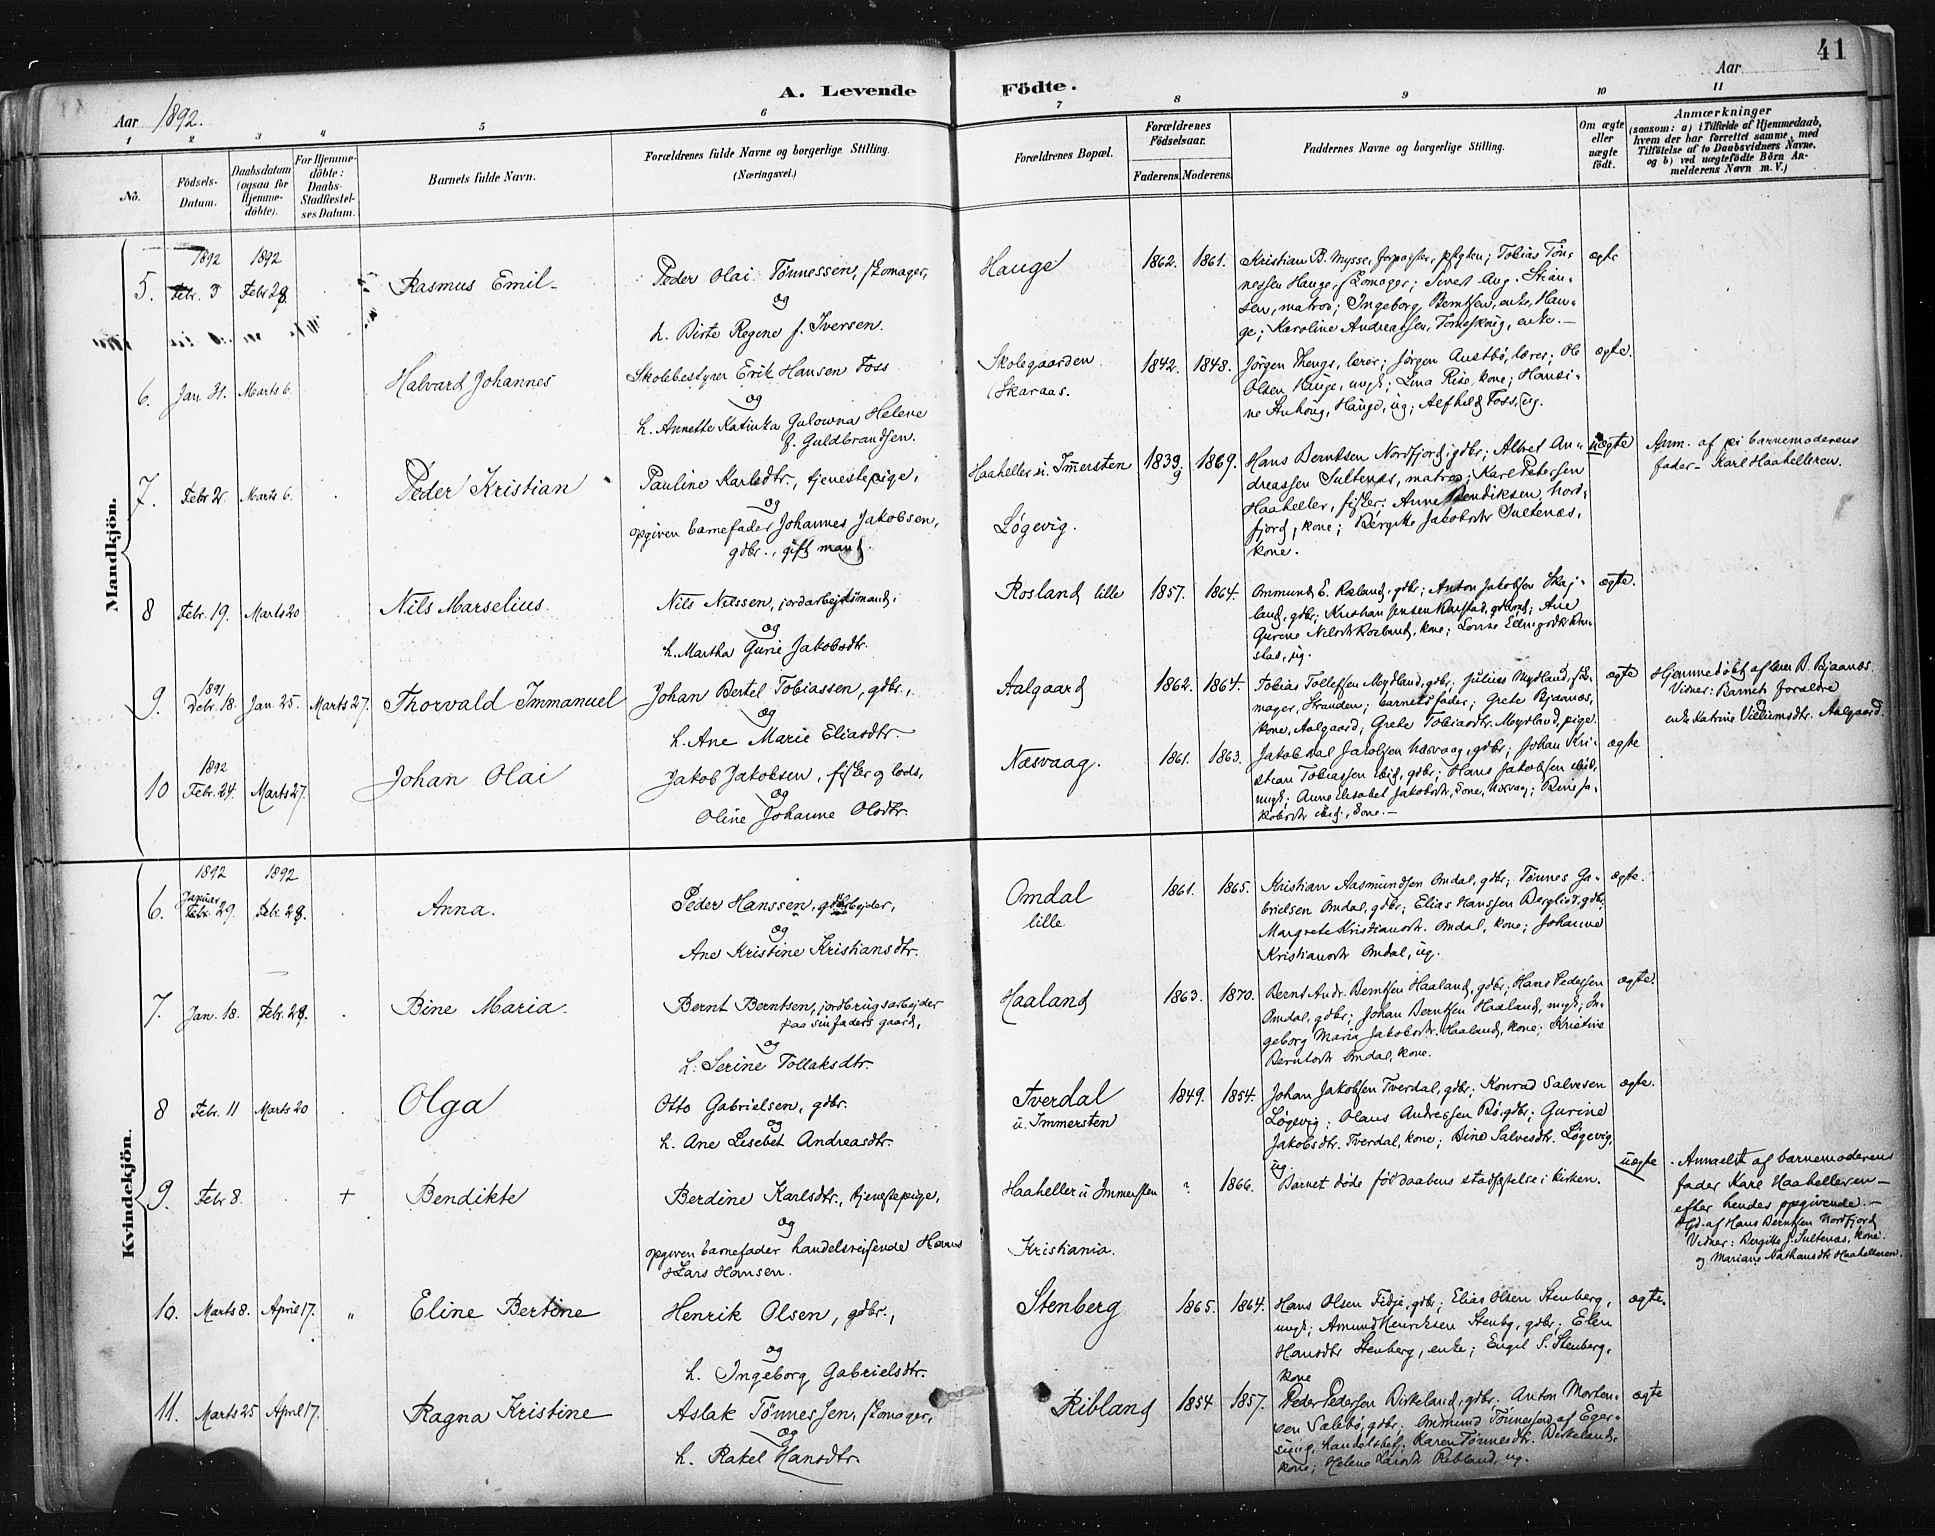 41
A. Levende Fødte.
Aar 1892.
Aar
1 2 3 4 5 6 7 8 9 10 11
No.
Fødsels-Datum.
Daabsdatum (ogsaa for Hjemme-døbte).
For Hjemme-døbte: Daabs-Stadfæstel-ses Datum.
Barnets fulde Navn.
Forældrenes fulde Navne og borgerlige Stilling.
(Næringsvei.)
Forældrenes Bopæl.
Forældrenes Fødselsaar.
Faderens. Moderens.
Faddernes Navne og borgerlige Stilling.
Om ægte eller uægte født.
Anmærkninger
(saasom: a) i Tilfælde af Hjemmedaab, hvem der har forrettet samme, med Tilføielse af to Daabsvidners Navne, og b) ved uægtefødte Børn An-melderens Navn m. V.)
Mandkjön.
1892 1892
5. Febr. 3 Febr 28. Rasmus Emil
Peder Olai Tønnessen, skomager,
og
h. Birte Regine f. Iversen.
Hauge 1862. 1861.
Kristian B. Mysse, forpagter, ; Tobias Tøn-
nessen Hauge, skomager; Sivert Aug.
sen, matros; Ingeborg Berntsen, enke, Hau-
ge; Karoline Andreassen, , enke.
ægte
6. Jan. 31. Marts 6. Halvard Johannes
Skolebestyrer Erik Hansen Foss
og
h. Annette Katinka Gulowna Helene
f. Guldbrandsen.
Skolegaarden
(Skaraas.
1842. 1848.
Jørgen Thengs, lærer; Jørgen Austbø, lærer; Ole
Olsen Hauge, ungk; Lina Rise, kone; Hansi-
ne , Hauge, ug; Alfhild Foss, ug.
ægte.
7. Febr 21. Marts 6. Peder Kristian
Pauline Karlsdtr., tjenestepige,
og
opgiven barnefader Johannes Jakobsen,
gdbr., gift mand.
Haaheller u. Immersten
Løgevig.
1839 1869.
Hans Berntsen Nordfjord, gdbr; Albert An-
dreassen Sultenæs, matros; Karl Petersen
Haaheller, fisker; Anne Bendiksen, Nord-
fjord, kone; Bergitte Jakobsdtr Sultenæs,
kone.
uægte
Anm. af pi barnemoderens
fader Karl Haahelleren.
8 Febr. 19. Marts 20 Nils Marselius.
Nils Nilssen, jordarbejdsmand,
og
h. Martha Gurie Jakobsdtr.
Rosland lille 1857. 1864.
Ommund E. Rosland, gdbr; Anton Jakobsen Skaj-
land, gdbr; Kristian Jensen , ; Ane
Gurine Nilsdtr Rosland, kone; Lovise
, ug.
ægte.
1891
9. Debr. 18. Jan. 25. Marts 27. Thorvald Immanuel
Johan Bertel Tobiassen, gdbr.,
og
h. Ane Marie Eliasdtr.
Aalgaard 1862. 1864.
Tobias Tollefsen Mydland, gdbr; Julius Mydland, sko-
mager, Stranden; barnets fader; Grete Bjaanæs,
kone, Aalgaard; Grete Tobiasdtr. Mydland, pige.
ægte
Hjemmedøbt af lærer B. Bjaanæs.
Vidner: Barnets forældre
enke Katrine Villumsdtr. Aalgaard.
1892
10 Febr. 24. Marts 27. Johan Olai
Jakob Jakobsen, fisker og lods,
og
Oline Johanne Olsdtr.
Næsvaag. 1861. 1863.
Jakob Jakobsen Næsvaag, gdbr; Johan Kri-
stian Tobiassen ibid, gdbr; Hans Jakobsen ibid,
ungk; Anne Elisabet Jakobsdtr, kone, Næsvaag; Ja-
kobsdtr ibid., kone.
ægte
Kvindekjön.
1892 1892
6. Januar
Febr. 29. Febr. 28. Anna.
Peder Hanssen, gdarbejder,
og
Ane Kristine Kristiansdtr.
Omdal
lille.
1861. 1865.
Kristian Aasmundsen Omdal, gdbr; Tønnes Ga-
brielsen Omdal, gdbr; Elias Hanssen Berglid, gdbr,
Margrete Kristiansdtr. Omdal, kone; Johanne
Kristiansdtr Omdal, ug.
ægte.
7. Jan. 18. Febr. 28. Bine Maria.
Bernt Berntsen, jordbrugsarbejder
paa sin faders gaard,
og
h. Serine Tollaksdtr.
Haaland 1863. 1870.
Bernt Andr. Berntsen Haaland, gdbr; Hans Pedersen
Omdal, gdbr; Johan Berntsen Haaland, ungk; In-
geborg Maria Jakobsdtr. Haaland, kone; Kristine
Berntsdtr Omdal, kone.
ægte.
8 Febr. 11 Marts 20 Olga
Otto Gabrielsen, gdbr.
og
h. Ane Lisebet Andreasdtr.
Tverdal
u. Immersten
1849. 1854.
Johan Jakobsen Tverdal, gdbr; Konrad Salvesen
Løgevig; Olaus Andreassen Bø, gdbr; Gurine
Jakobsdtr. Tverdal, kone; Bine Salvesdtr. Løgevig,
ug.
ægte.
9. Febr 8. + Bendikte
Berdine Karlsdtr., tjenestepige,
og
opgiven barnefader handelsreisende Hans
Lars Hansen.
Haaheller u Immersten
Kristiania.
? 1866.
Barnet døde før daabens stadfæstelse i kirken.
uægte
Anmeldt af barnemoderens
fader Karl Haahelleren
efter hendes opgivende.
Hd. af Hans Berntsen Nordfjord
Vidner: Bergitte J. Sultenæs, kone
og Mariane Nathansdtr Haahelleren.
10. Marts 8. April 17. " Eline Bertine
Henrik Olsen, gdbr.,
og
h. Ingeborg Gabrielsdtr.
Stenberg 1865. 1864.
Hans Olsen Fidje, gdbr; Elias Olsen Stenberg,
ungk; Amund Henriksen Stenbg, gdbr; Elen
Hansdtr Stenberg, enke; Engel S. Stenberg,
kone
ægte.
11. Marts 25 April 17. Ragna Kristine
Aslak Tønnessen, skomager,
og
h. Rakel Hansdtr
Ribland 1854 1857.
Peder Pedersen Birkeland, gdbr. Anton Morten-
sen Salebø, gdbr. Ommund Tønnessen af Eger-
sund, handelsbetj. Karen Tønnesdtr. Birkeland,
kone; Helene Larsdtr Ribland, ug.
ægte